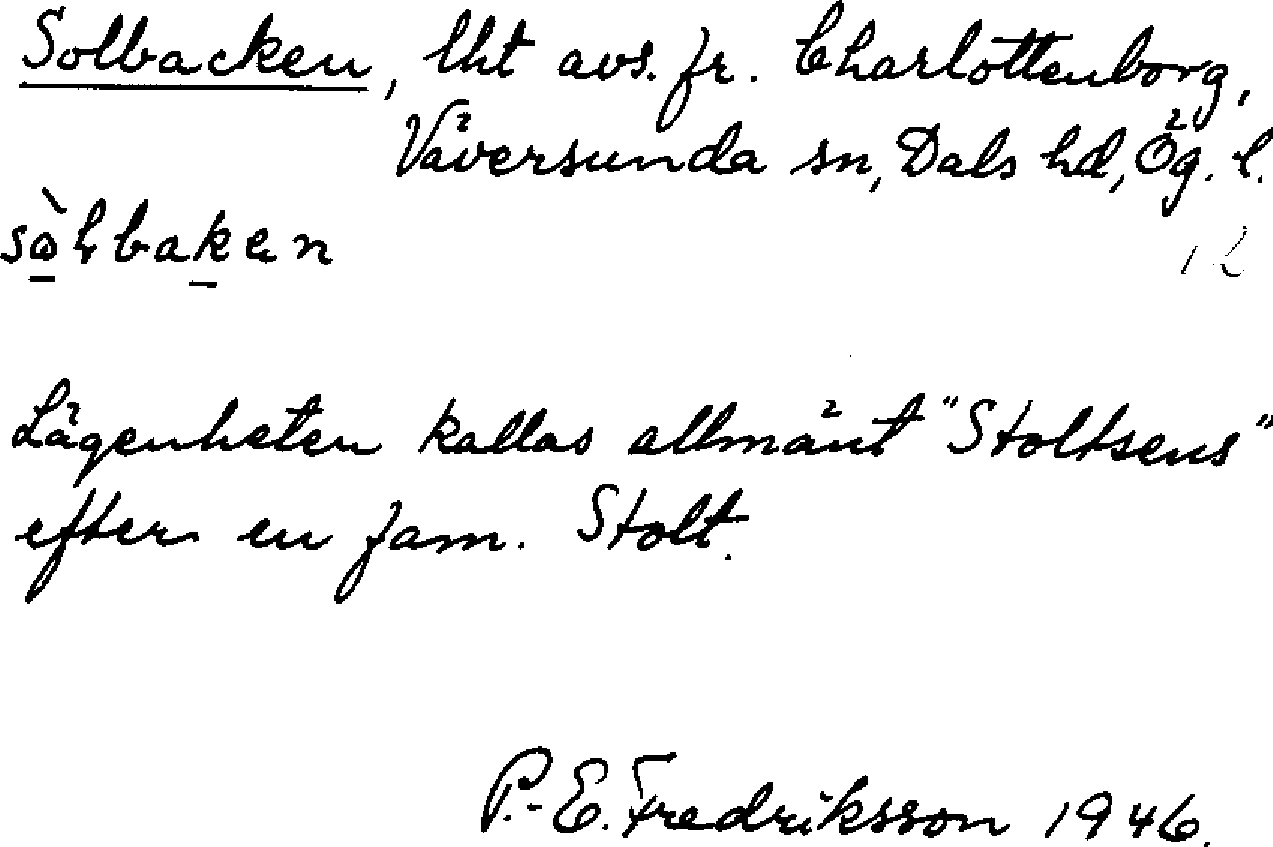 Solbacken, lht avs. fr. Charlottenborg,
Väversunda sn, Dals hd, Ög. l.
Lägenheten kallas allmänt "Stoltsens"
efter en fam. Stolt.
P.-E. Fredriksson 1946.